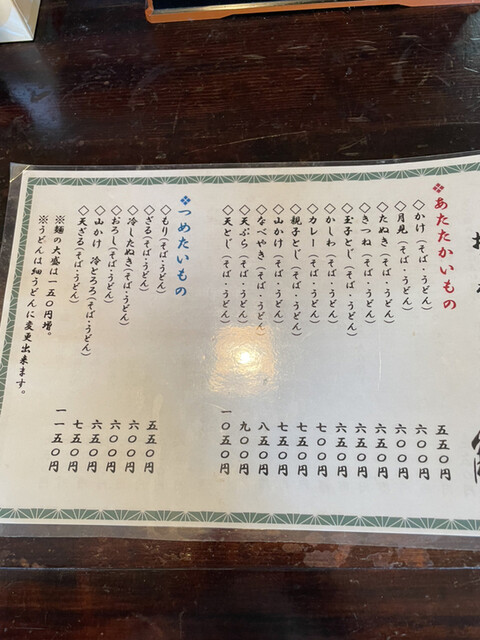 ❖あたたかいもの
◇かけ(そば・うどん) 五五〇円
◇月見(そば・うどん) 六〇〇円
◇たぬき(そば・うどん) 六〇〇円
◇きつね(そば・うどん) 六五〇円
◇玉子とじ(そば・うどん) 六五〇円
◇かしわ(そば・うどん) 六五〇円
◇カレー(そば・うどん) 七〇〇円
◇親子とじ(そば・うどん) 七五〇円
◇山かけ(そば・うどん) 七五〇円
◇なべやき(そば・うどん) 八五〇円
◇天ぷら(そば・うどん) 九〇〇円
◇天とじ(そば・うどん) 一〇五〇円
❖つめたいもの
◇もり(そば・うどん) 五五〇円
◇ざる(そば・うどん) 六〇〇円
◇冷したぬき(そば・うどん) 六〇〇円
◇おろし(そば・うどん) 六五〇円
◇山かけ 冷とろろ(そば・うどん) 七五〇円
◇天ざる(そば・うどん) 一一五〇円
※麺の大盛は一五〇円増。
※うどんは細うどんに変更出来ます。